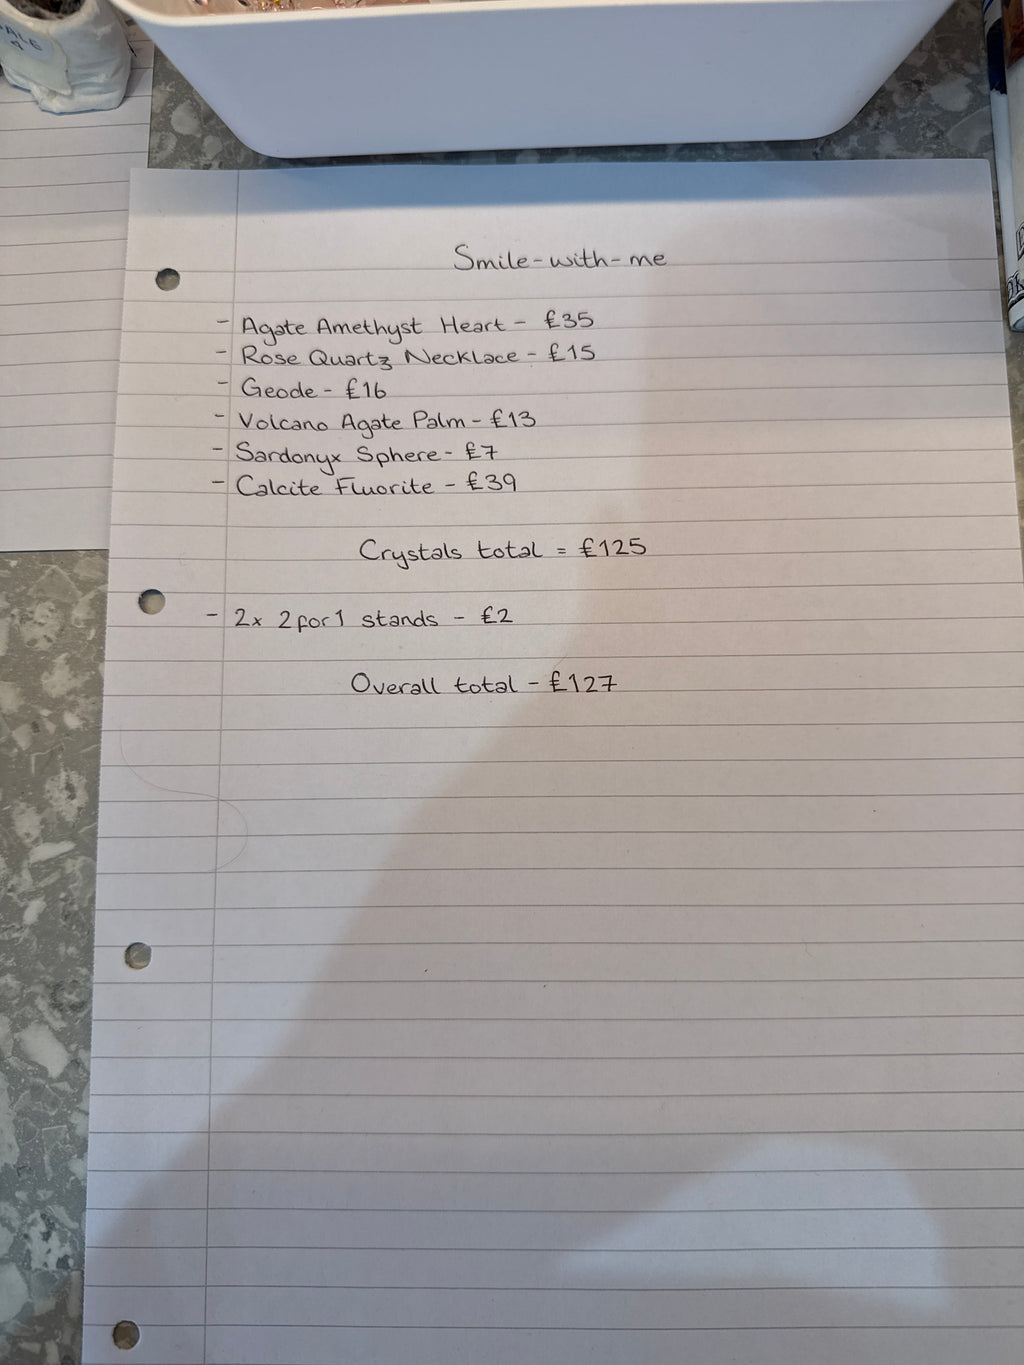 SALE
Smile-with-me
- Agate Amethyst Heart - £35
- Rose Quartz Necklace - £15
- Geode - £16
- Volcano Agate Palm - £13
- Sardonyx Sphere - £7
- Calcite Fluorite - £39
Crystals total = £125
- 2x 2for1 stands - £2
Overall total - £127